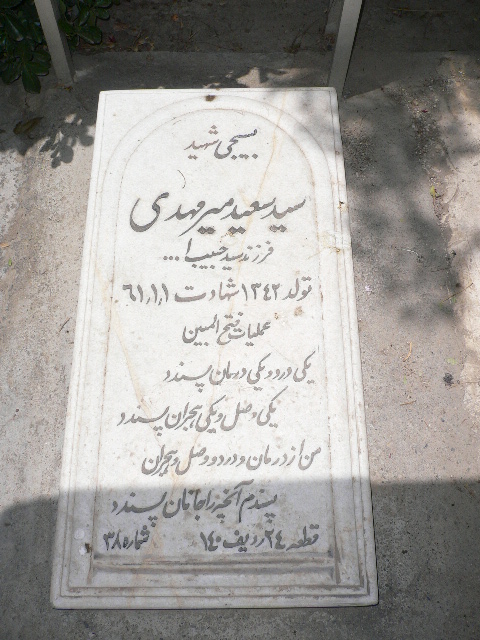 بسیجی شهید
سید سعید میرمهدی
فرزند سید حبیب ا...
تولد ۱۳۴۲ شهادت ۶۱،۱،۱
عملیات فتح المبین
یکی درد و یکی درمان پسندد
یکی وصل و یکی هجران پسندد
من از درمان و درد و وصل و هجران
پسندم آنچه را جانان پسندد
قطعه ۲۴ ردیف ۱۴۰ شماره ۳۸